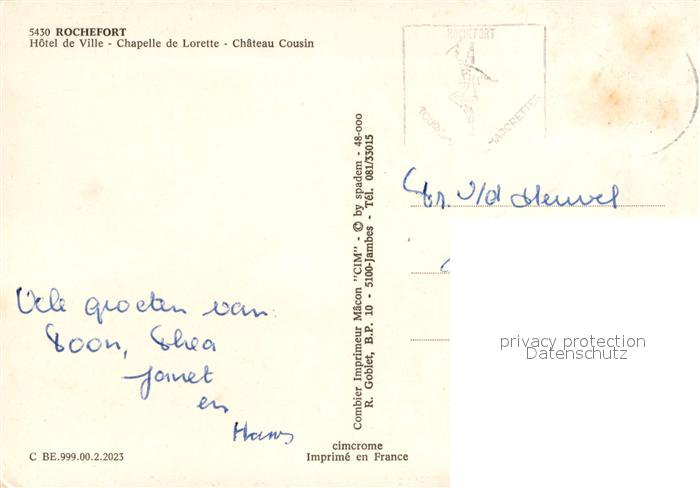 5430 ROCHEFORT
Hôtel de Ville - Chapelle de Lorette - Château Cousin
ROCHEFORT
MAJORETTES
Combier Imprimeur Mâcon "CIM" - © by spadem - 48-000
R. Goblet, B.P. 10 - 5100-Jambes - Tél. 081/33015
v/d Heuvel
privacy protection
Datenschutz
Vele groeten van
Toon, Thea
Jornet
en
Hans
C BE.999.00.2.2023
cimcrome
Imprimé en France